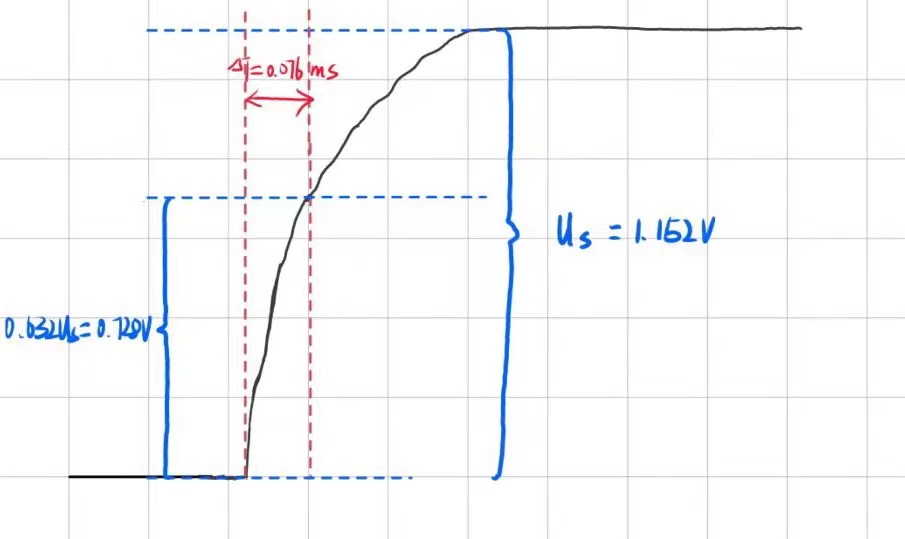 ΔT=0.076ms
Us = 1.152V
0.632Us=0.728V